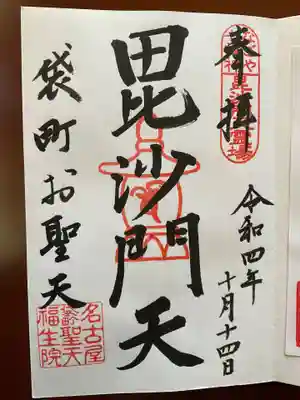 奉拝
令和四年
十月十四日
毘沙門天
袋町お聖天
名古屋
聖天
福生院